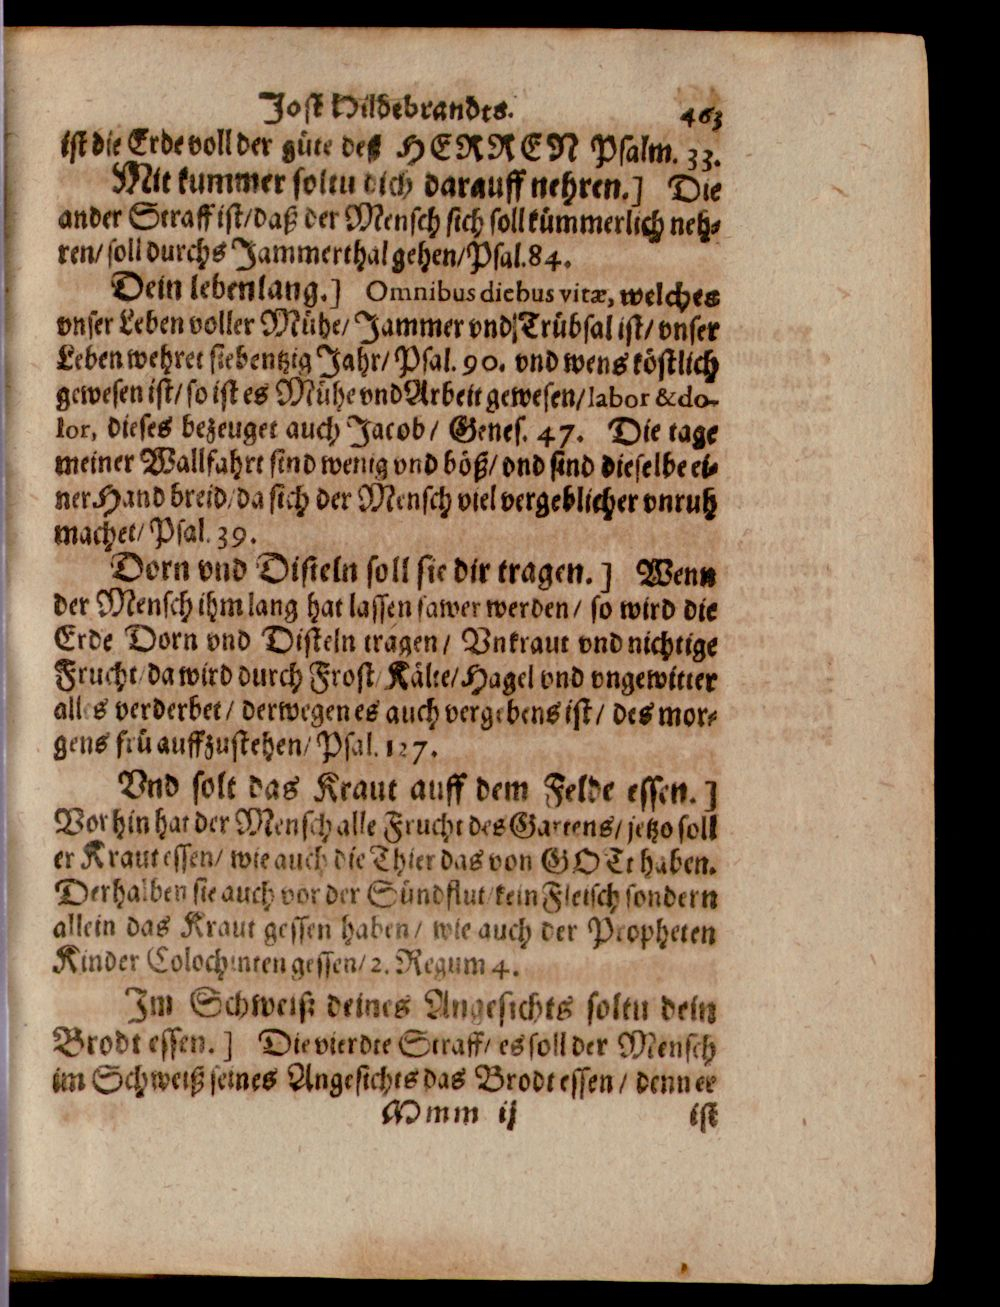 Jost Hildebrandts. 463
ist die Erde voll der güte des HERREN Psalm. 33.
Mit kummer soltu dich darauff nehren.] Die
ander Straff ist/ daß der Mensch sich soll kümmerlich neh-
ren/ soll durchs Jammerthal gehen/ Psal. 84.
Dein lebenlang.] Omnibus diebus vitæ, welches
vnser Leben voller Mühe/ Jammer vnd Trübsal ist/ vnser
Leben wehret siebentzig Jahr/ Psal. 90. vnd wens köstlich
gewesen ist/ so ist es Mühe vnd Arbeit gewesen/ labor & do-
lor, dieses bezeuget auch Jacob/ Genes. 47. Die tage
meiner Wallfahrt sind wenig vnd böß/ vnd sind dieselbe ei-
ner Hand breid/ da sich der Mensch viel vergeblicher vnruh
machet/ Psal. 39.
Dorn vnd Disteln soll sie dir tragen.] Wenn
der Mensch ihm lang hat lassen sawer werden/ so wird die
Erde Dorn vnd Disteln tragen/ Vnkraut vnd nichtige
Frucht/ da wird durch Frost/ Kälte/ Hagel vnd vngewitter
alles verderbet/ derwegen es auch vergebens ist/ des mor-
gens frü auffzustehen/ Psal. 127.
Vnd solt das Kraut auff dem Felde essen.]
Vorhin hat der Mensch alle Frucht des Gartens/ jetzo soll
er Kraut essen/ wie auch die Thier das von GOTt haben.
Derhalben sie auch vor der Sündflut/ kein Fleisch sondern
allein das Kraut gessen haben/ wie auch der Propheten
Kinder Colochinten gessen/ 2. Regum 4.
Im Schweiß deines Angesichts soltu dein
Brodt essen.] Die vierdte Straff/ es soll der Mensch
im Schweiß seines Angesichts das Brodt essen/ denn er
Mmm ij ist